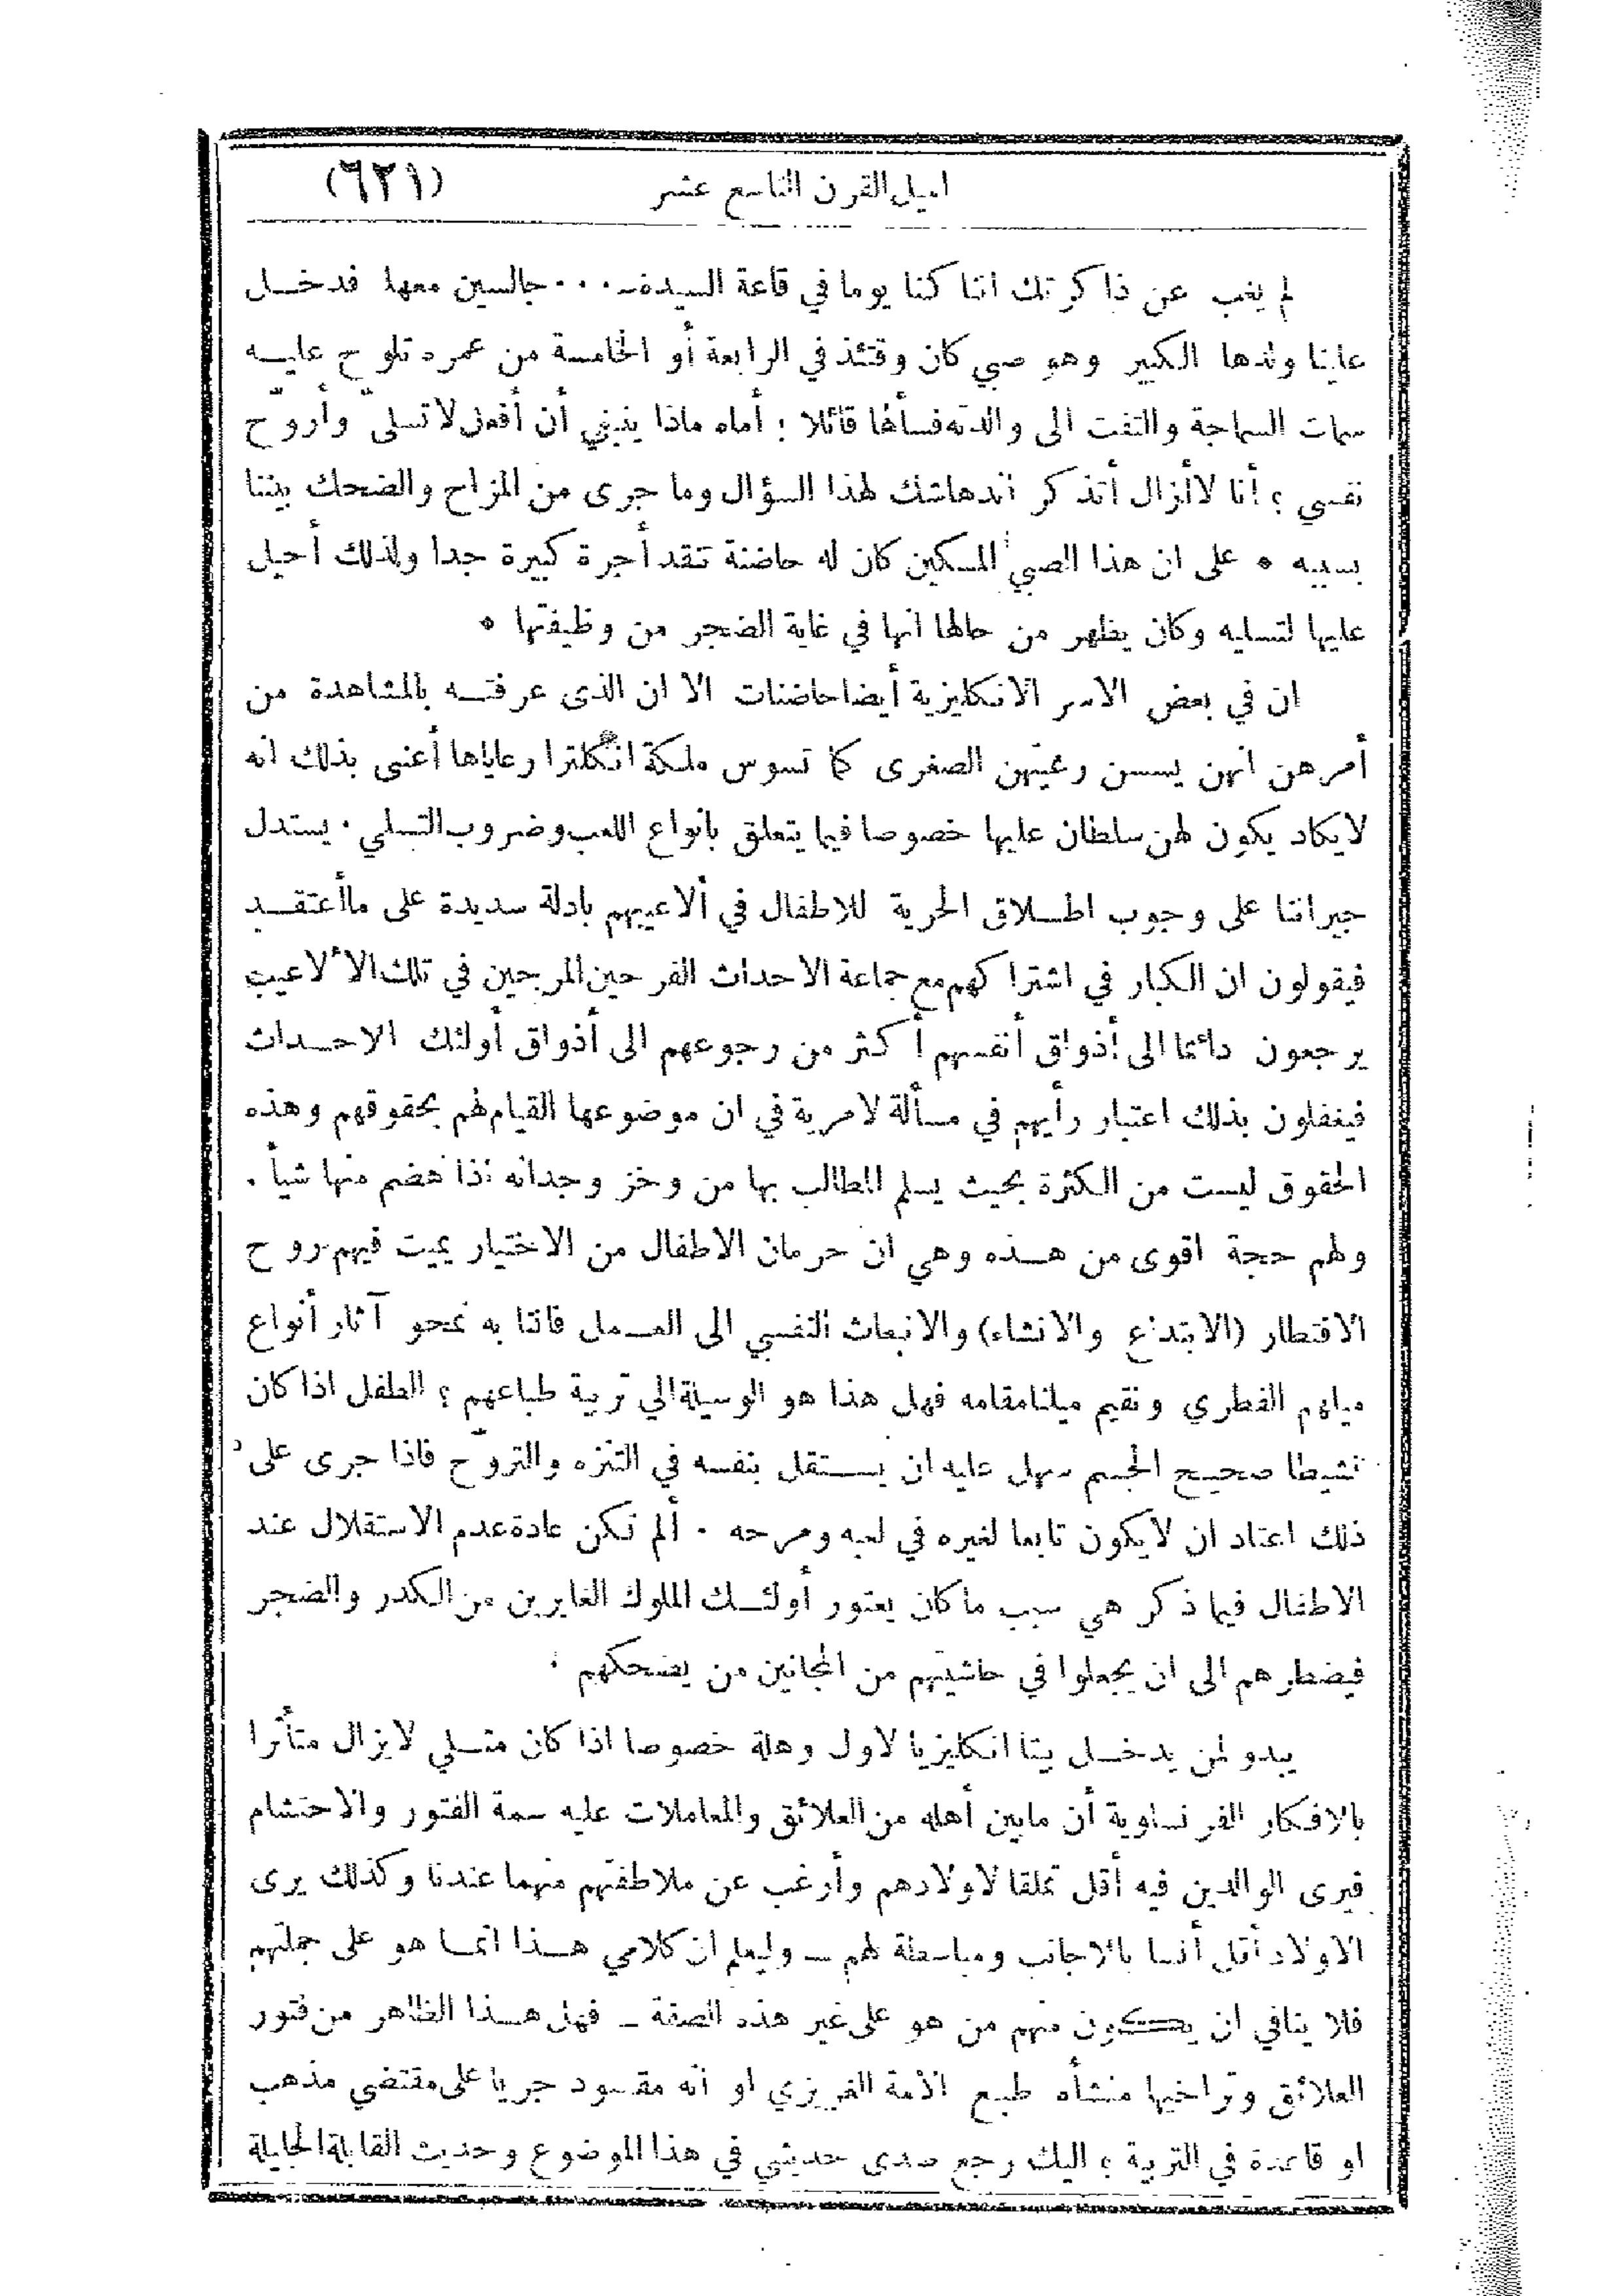 اميل القرن التاسع عشر (٦٢١)
لم يغب عن ذاكرتك اننا كنا يوما في قاعة السيدة ــ . . . جالسين معها فدخــل
علينا ولدها الكبير وهو صبي كان وقتئذ في الرابعة أو الخامسة من عمره تلوح عليــه
سمات السماجة والتفت الى والدته فسألها قائلا : أماه ماذا ينبغي أن أفعل لاتسلىّ وأروّح
نفسي ؟ أنا لاأزال أتذكر اندهاشك لهذا السؤال وما جرى من المزاح والضحك بيننا
بسببه * على ان هذا الصبي المسكين كان له حاضنة تنقد أجرة كبيرة جدا ولذلك أحيل
عليها لتسليه وكان يظهر من حالها انها في غاية الضجر من وظيفتها *
ان في بعض الاسر الانكليزية أيضا حاضنات الا ان الذى عرفتــه بالمشاهدة من
أمرهن انهن يسسن رعيتهن الصغرى كما تسوس ملكة انكلترا رعاياها أعنى بذلك انه
لايكاد يكون لهن سلطان عليها خصوصا فيما يتعلق بانواع اللعب وضروب التسلي . يستدل
جيراننا على وجوب اطــلاق الحرية للاطفال في ألاعيبهم بادلة سديدة على ماأعتقــد
فيقولون ان الكبار في اشتراكهم مع جماعة الاحداث الفرحين المرحين في تلك الألاعيب
يرجعون دائما الى أذواق أنفسهم أكثر من رجوعهم الى أذواق أولئك الاحــداث
فيغفلون بذلك اعتبار رأيهم في مسألة لامرية في ان موضوعها القيام لهم بحقوقهم وهذه
الحقوق ليست من الكثرة بحيث يسلم المطالب بها من وخز وجدانه اذا هضم منها شيأ .
ولهم حجة اقوى من هــذه وهي ان حرمان الاطفال من الاختيار يميت فيهم روح
الافتطار (الابتداع والانشاء) والانبعاث النفسي الى العــمل فاننا به نمحو آثار أنواع
ميلهم الفطري ونقيم ميلنا مقامه فهل هذا هو الوسيلة الي تربية طباعهم ؟ الطفل اذا كان
نشيطا صحيح الجسم سهل عليه ان يســتقل بنفسه في التنزه والتروّح فاذا جرى على
ذلك اعتاد ان لايكون تابعا لغيره في لعبه ومرحه . ألم تكن عادة عدم الاستقلال عند
الاطفال فيما ذكر هي سبب ما كان يعتور أولئــك الملوك الغابرين من الكدر والضجر
فيضطرهم الى ان يجعلوا في حاشيتهم من المجانين من يضحكهم ؟
يبدو لمن يدخــل بيتا انكليزيا لاول وهلة خصوصا اذا كان مثــلي لايزال متأثرا
بالافكار الفرنساوية أن مابين أهله من العلائق والمعاملات عليه سمة الفتور والاحتشام
فيرى الوالدين فيه أقل تملقا لاولادهم وأرغب عن ملاطفتهم منهما عندنا وكذلك يرى
الاولاد أقل أنسا بالاجانب ومباسطة لهم ــ وليعلم ان كلامي هــذا انمــا هو على جملتهم
فلا ينافي ان يكون منهم من هو على غير هذه الصفة ــ فهل هــذا الظاهر من فتور
العلائق وتراخيها منشأه طبع الامة الغريزي او انه مقصود جريا على مقتضي مذهب
او قاعدة في التربية ؟ اليك رجع صدى حديثي في هذا الموضوع وحديث القابلة الجليلة